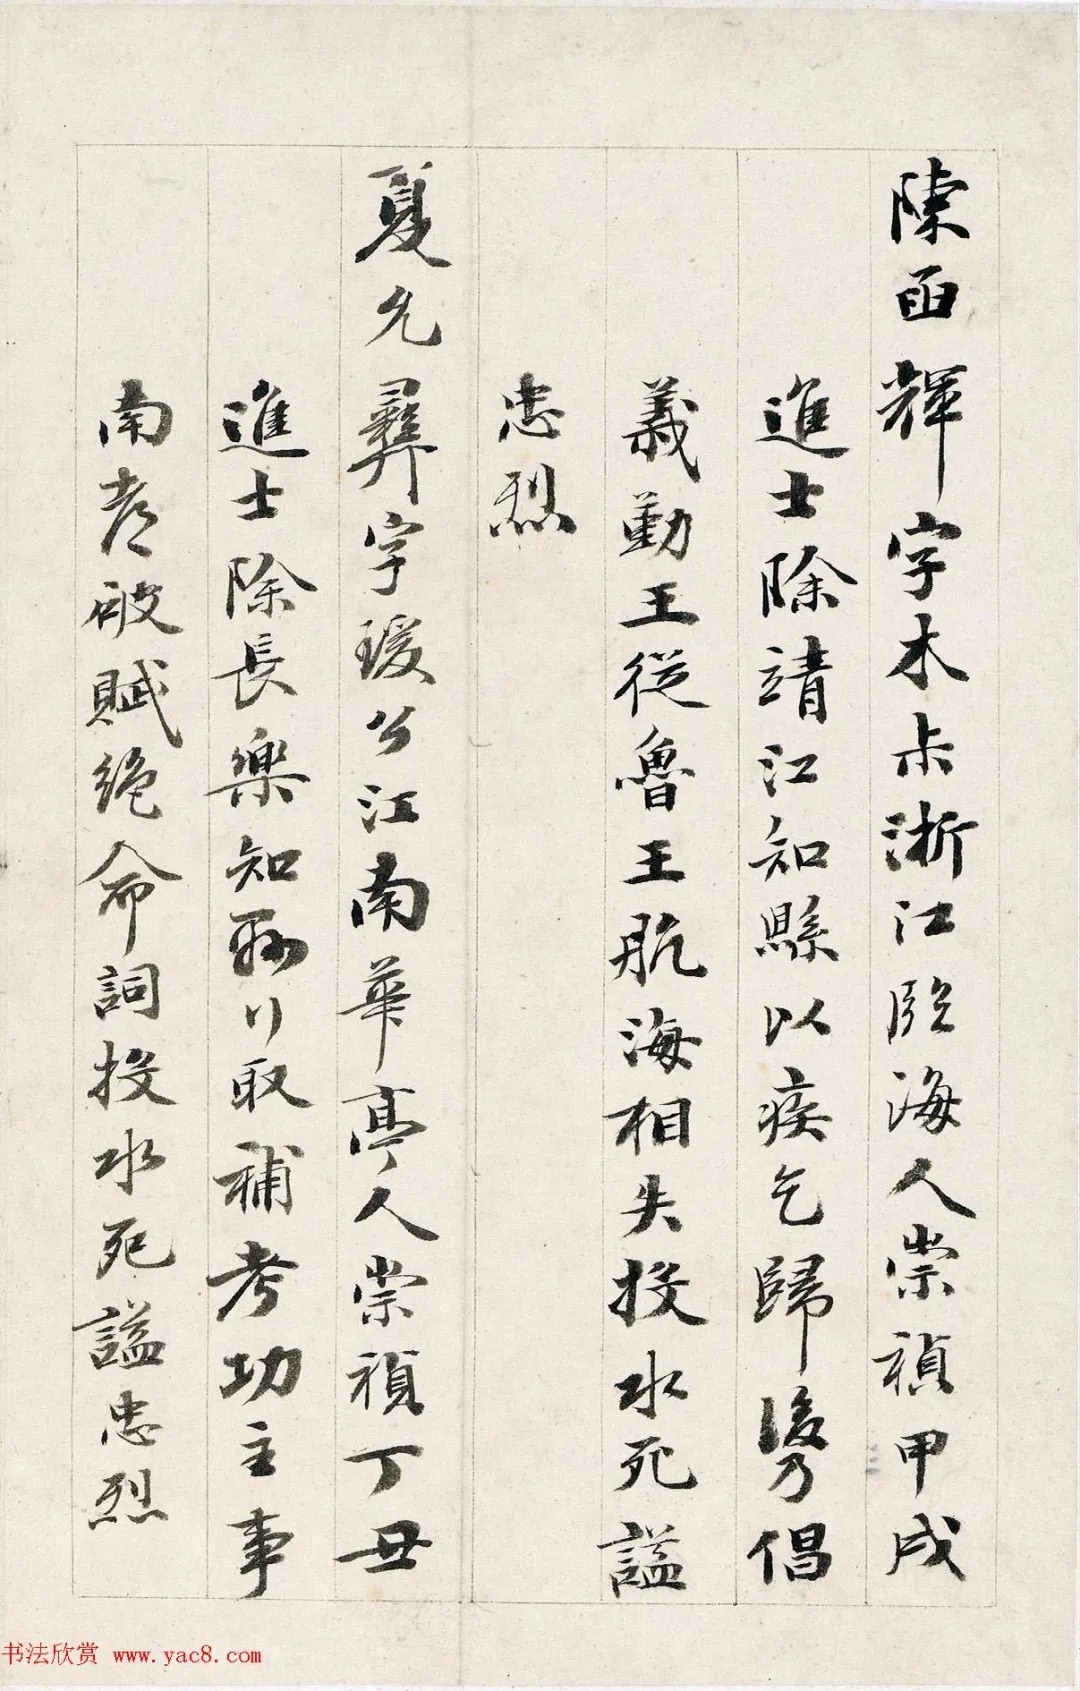 陳函輝字木尗浙江臨海人崇禎甲戌
進士除靖江知縣以疾乞歸後乃倡
義勤王從魯王航海相失投水死謚
忠烈
夏允彝字瑗公江南華亭人崇禎丁丑
進士除長樂知縣行取補考功主事
南都破賦絶命詞投水死謚忠烈
书法欣赏 www.yac8.com